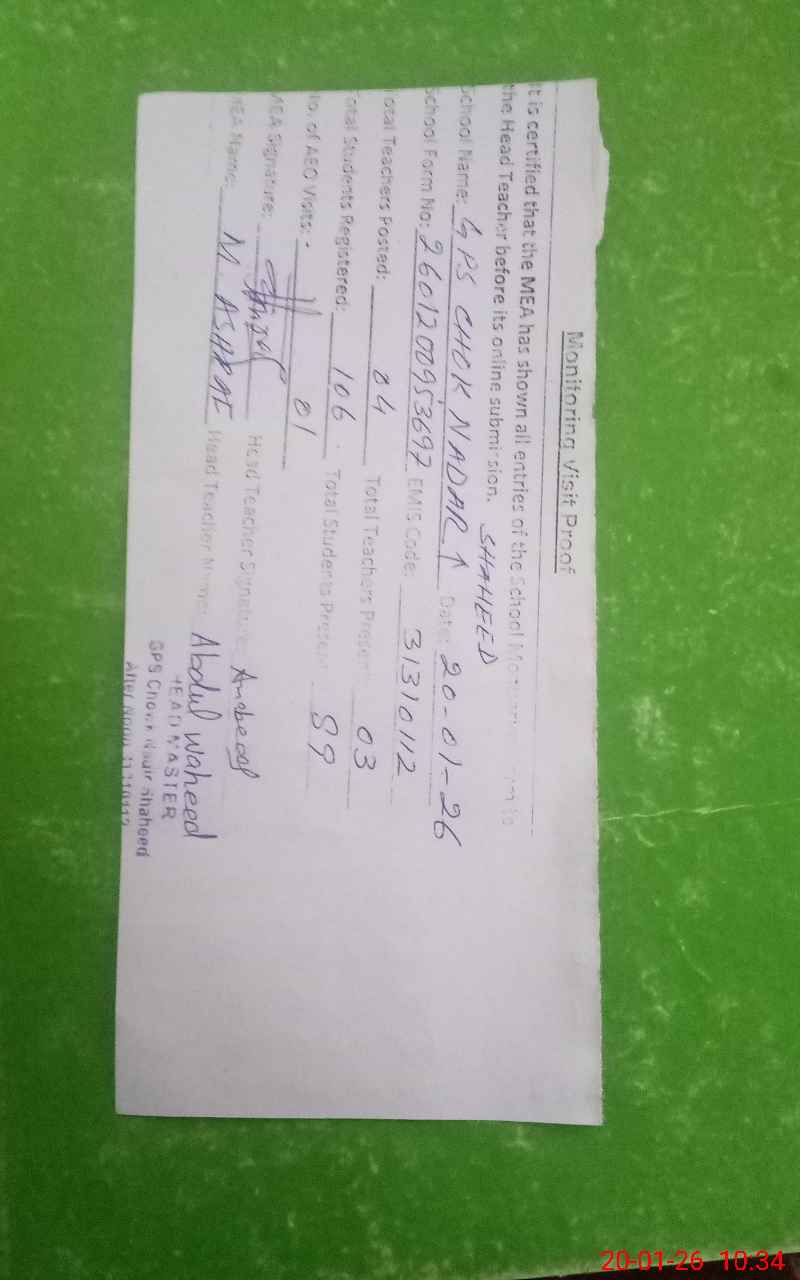 Monitoring Visit Proof
It is certified that the MEA has shown all entries of the School
the Head Teacher before its online submission. SHAHEED
School Name: GPS CHOK NADAR Date: 20-01-26
School Form No: EMIS Code: 31310112
Total Teachers Posted: 04 Total Teachers Present 03
Total Students Registered: 106 Total Students Present 89
No. of AEO Visits: - 01
MEA Signature: Head Teacher Signature
MEA Name: M. ASHRAF Head Teacher Name: Abdul Waheed
HEAD MASTER
GPS Chowk Nadir Shaheed
20-01-26 10:34